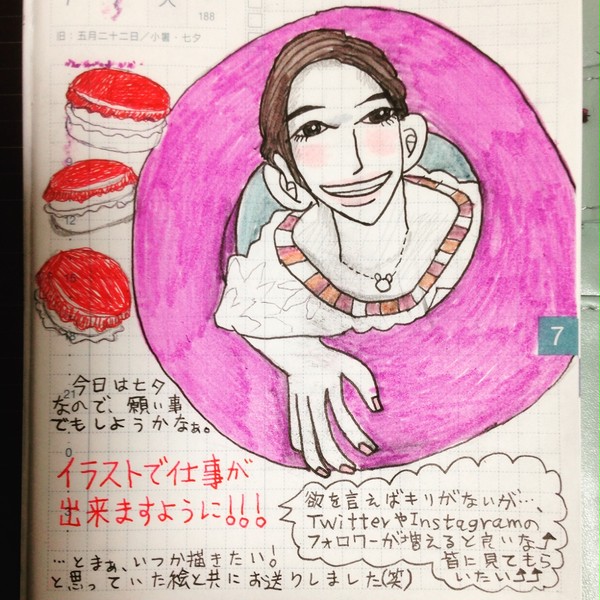 188
旧:五月二十二日/小暑・七夕
9
12
7
21
0
今日は七夕
なので、願い事
でもしようかなぁ。
イラストで仕事が
出来ますように!!!
欲を言えばキリがないが…、
TwitterやInstagramの
フォロワーが増えると良いな↑
皆に見てもら
いたい↑↑
…とまぁ、いつか描きたい!
と思っていた絵と共にお送りしました(笑)